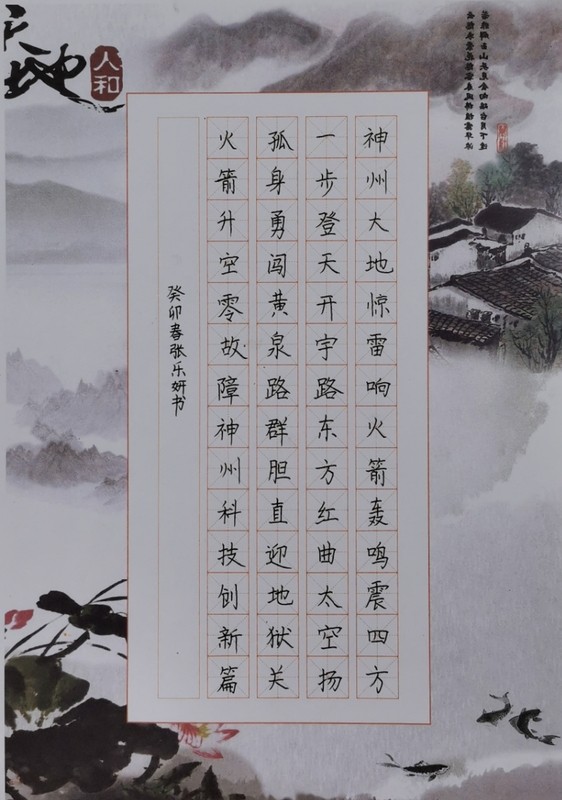 神州大地惊雷响火箭轰鸣震四方
一步登天开宇路东方红曲太空扬
孤身勇闯黄泉路群胆直迎地狱关
火箭升空零故障神州科技创新篇
癸卯春张乐妍书
地
人和